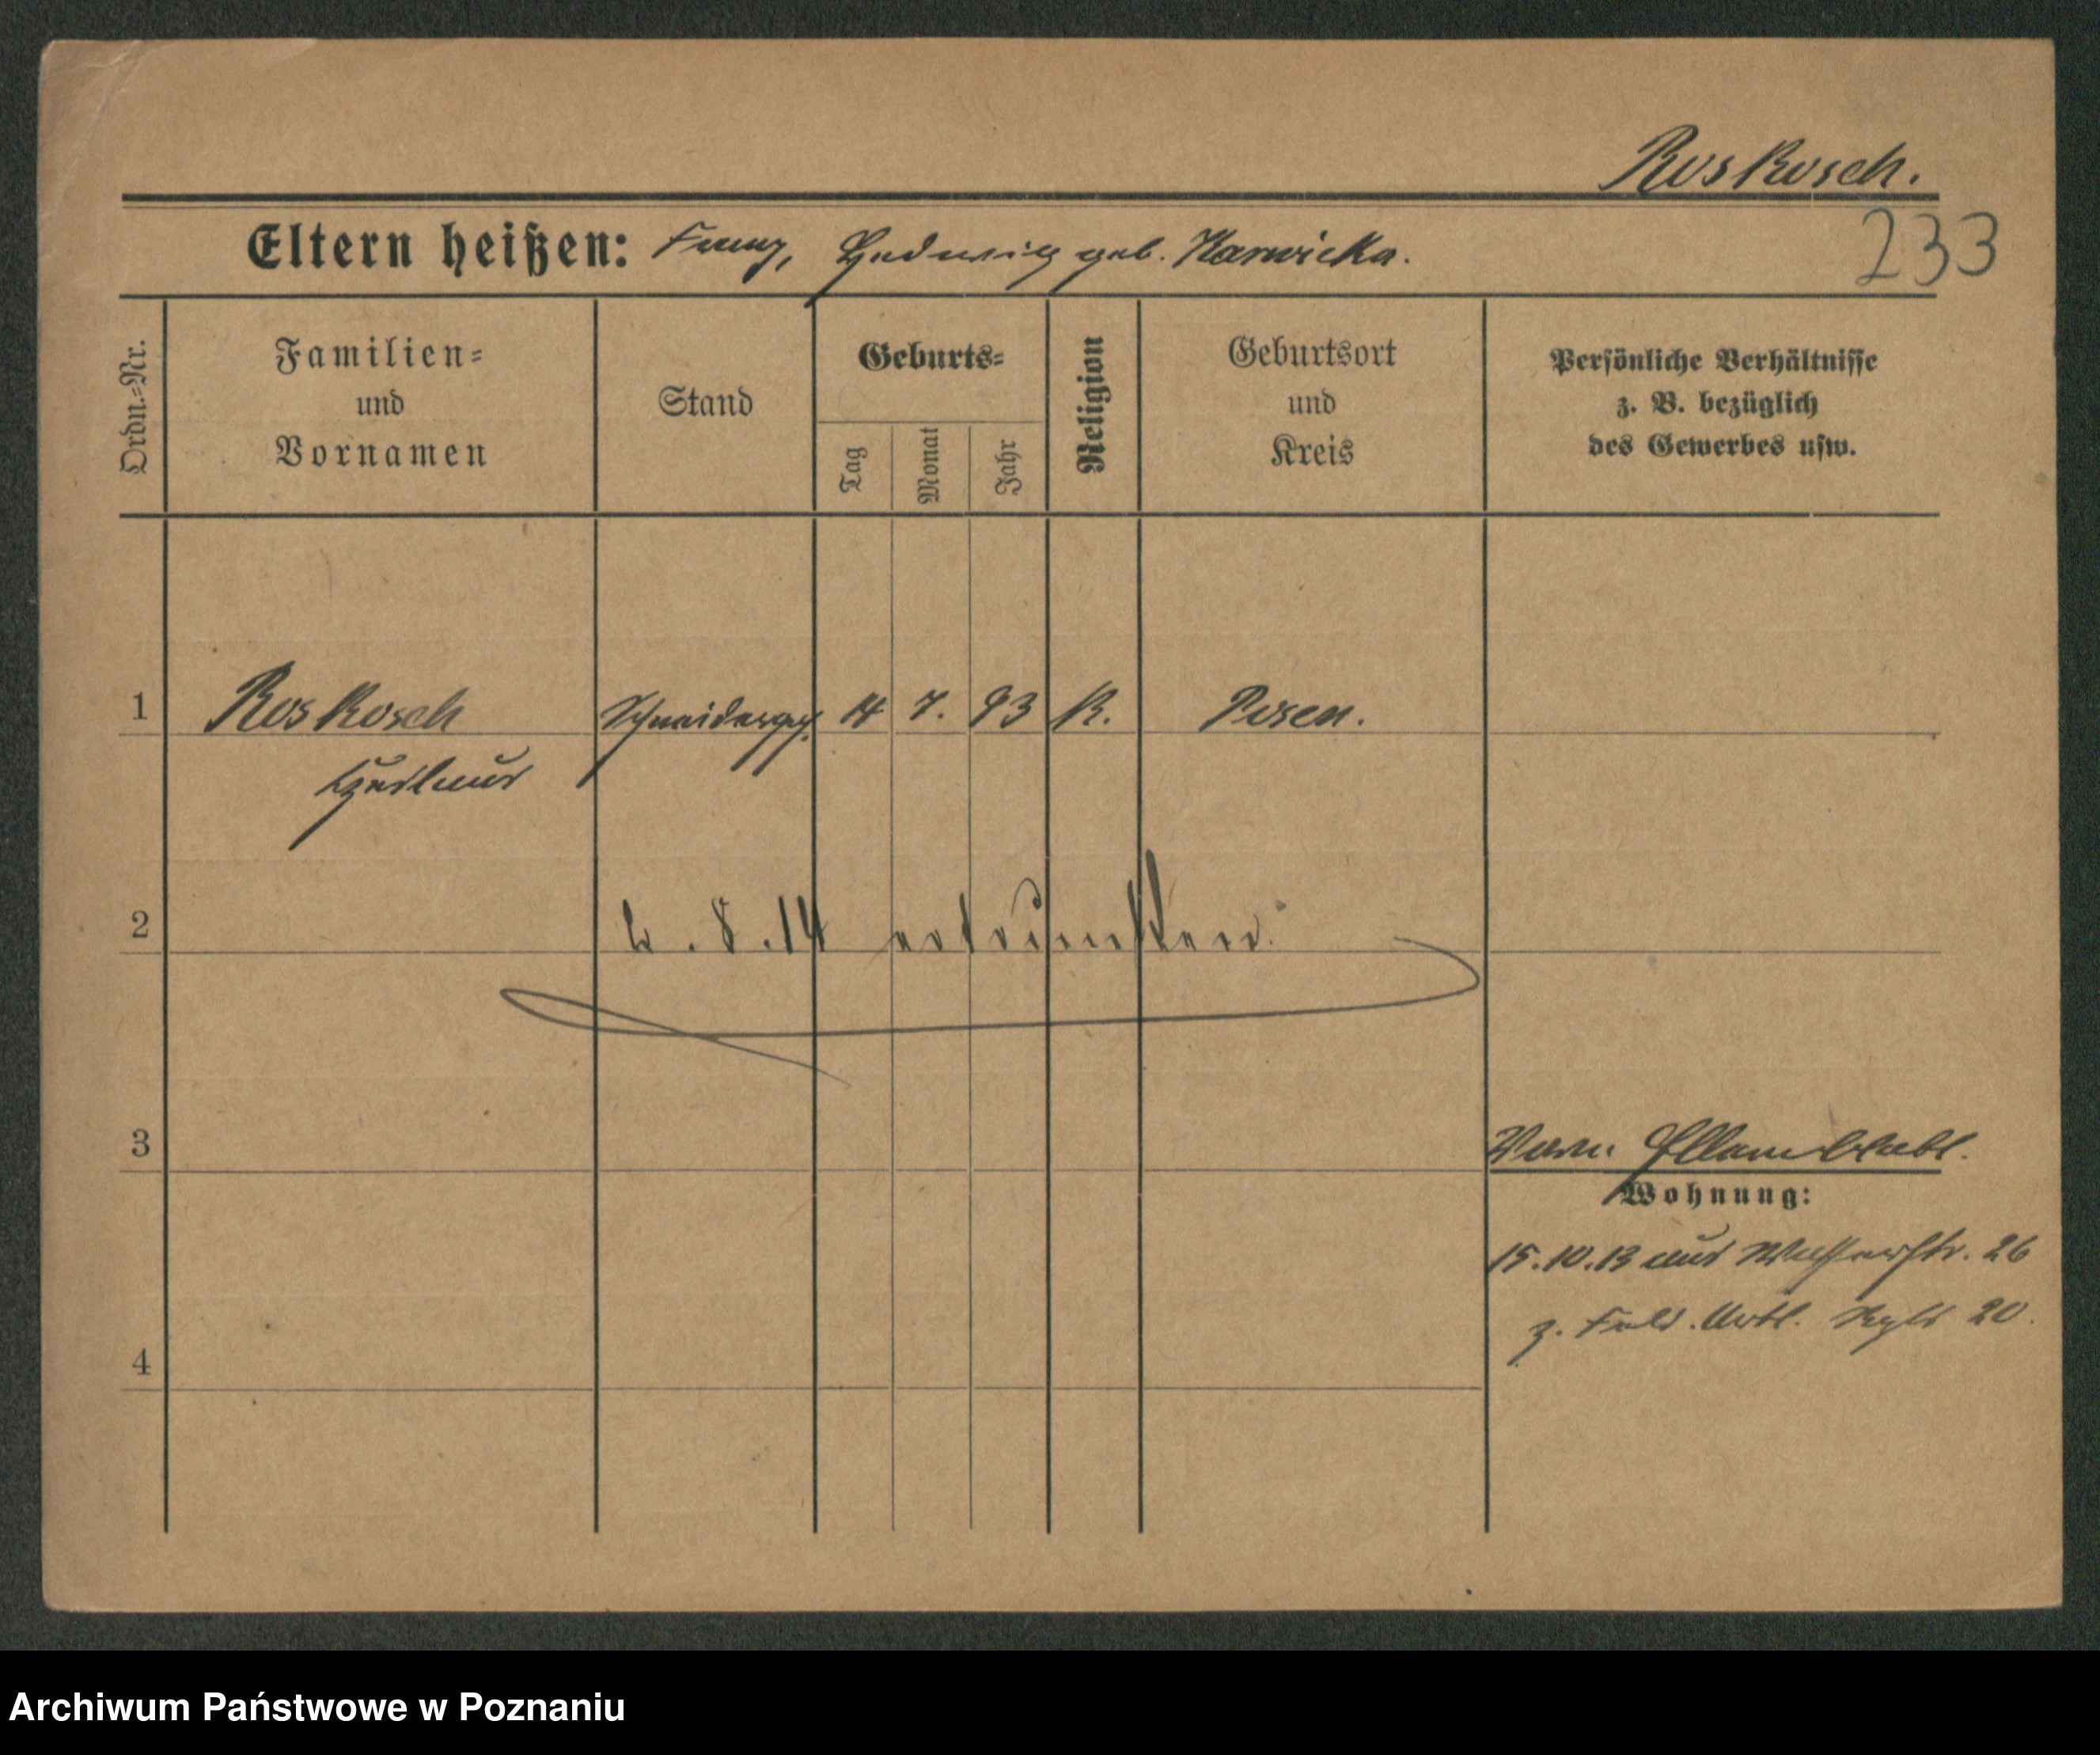 Roskosch.
Eltern heißen: Franz, Hedwig geb. Karwicka.
233
Ordn.=Nr.
Familien=
und
Vornamen
Stand
Geburts=
Tag
Monat
Jahr
Religion
Geburtsort
und
Kreis
Persönliche Verhältnisse
z. B. bezüglich
des Gewerbes usw.
1 Roskosch Schneiderges. 14 7. 93 K. Posen.
2 . 8 . 14 ertrunken.
3
Wohnung:
15.10.13 aus Wasserstr. 26
z. Feld. Artl. Rgts 20.
4
Archiwum Państwowe w Poznaniu